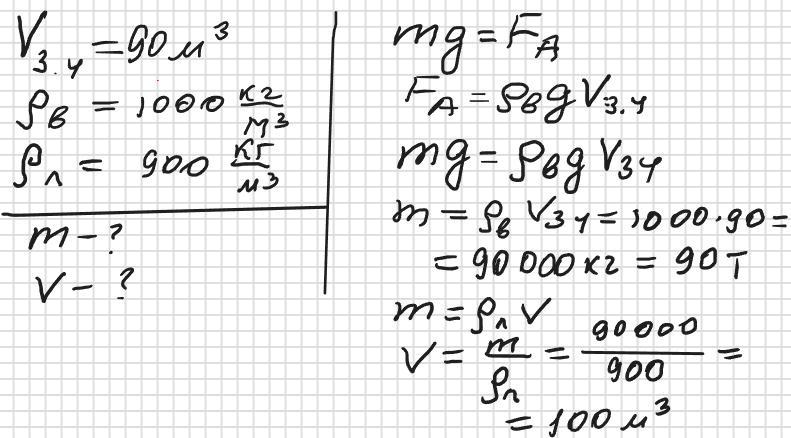 V з.ч = 90 м³
ρв = 1000 кг/м³
ρл = 900 кг/м³
m - ?
V - ?
mg = FA
FA = ρв g Vз.ч
mg = ρв g Vзч
m = ρв Vзч = 1000·90 =
= 90 000 кг = 90 т
m = ρл V
V = m/ρл = 90000/900 =
= 100 м³